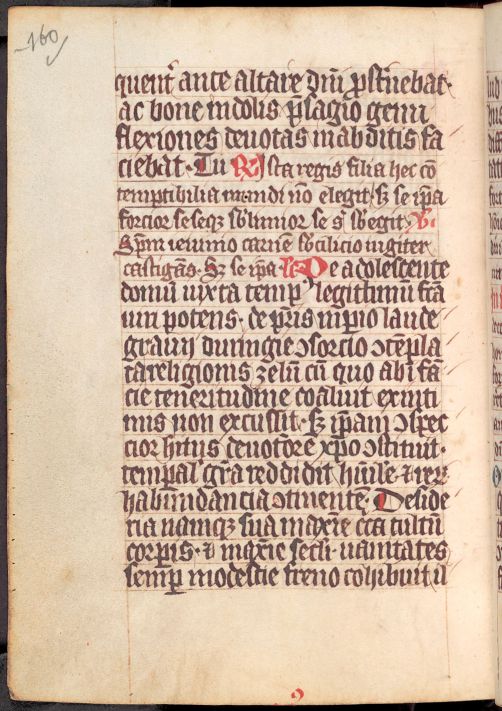 160
quent͛ ante altare dnī p̱st̄nebat·
ac bone indolis p̱sagio genu
flexiones deuotas in abditis fa
ciebat · Tu R̷ Ista regis filia hec cō
temptibilia mundi nō elegit · Sꝫ se ip̄a
forcior seseqꝫ sblimior se sbegit · V̷
Sp̄m ieiunio carnē sb cilicio iugiter
castigās · Sꝫ se ip̄a L̷c̄ De adolescente
domū iuxta temp⁹ legittimū fcā
uiri potens · de p̄ris inpio laude
grauii duringie ɔsorcio ɔtēpla
ta religionis zelū cū quo abī fā
cie teneritudine coaluit exniti
mis non excussit · Sꝫ ip̄am ɔspec
cior deuotōre xpō ɔstituit ·
temp̱al gr̄a reddidit hūile · ⁊ rerū
habundancia ɔtinentē · Deside
ria namqꝫ sua circa cultū
corp̱is · ⁊ seculi uanitates
semp̱ modestie freno cohibuit